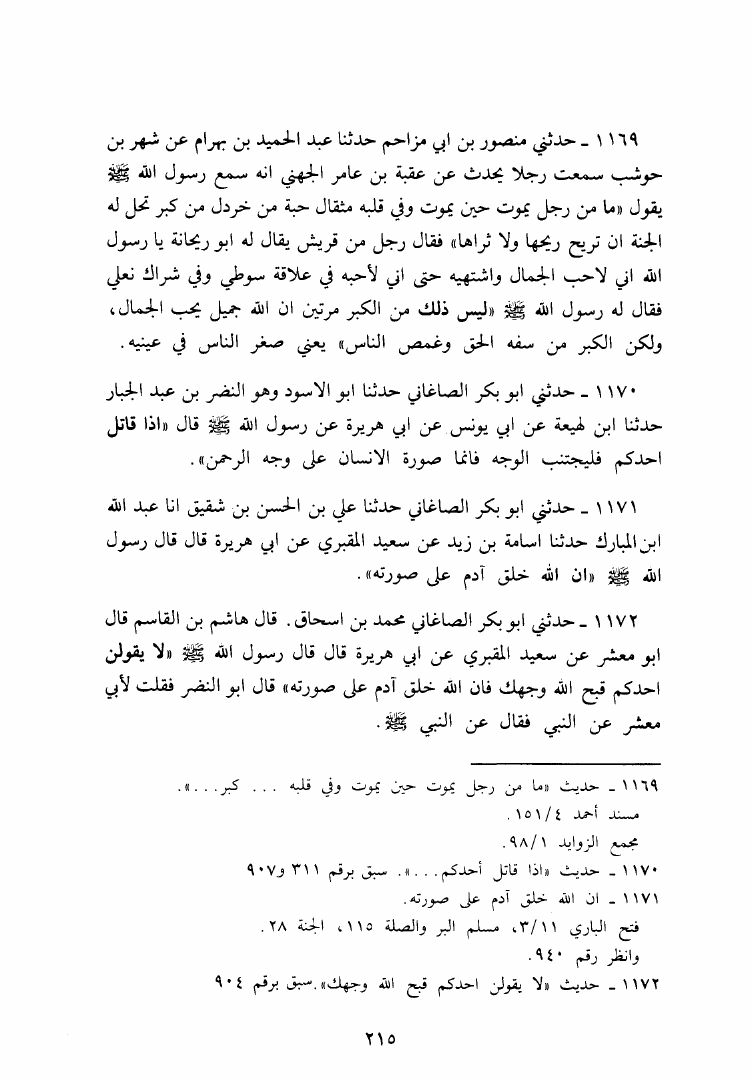 ١١٦٩ - حدثني منصور بن ابي مزاحم حدثنا عبد الحميد بن بهرام عن شهر بن
حوشب سمعت رجلا يحدث عن عقبة بن عامر الجهني انه سمع رسول الله ﷺ
يقول «ما من رجل يموت حين يموت وفي قلبه مثقال حبة من خردل من كبر تحل له
الجنة ان تريح ريحها ولا ثراها» فقال رجل من قريش يقال له ابو ريحانة يا رسول
الله اني لاحب الجمال واشتهيه حتى اني لأحبه في علاقة سوطي وفي شراك نعلي
فقال له رسول الله ﷺ «ليس ذلك من الكبر مرتين ان الله جميل يحب الجمال،
ولكن الكبر من سفه الحق وغمص الناس» يعني صغر الناس في عينيه.
١١٧٠ - حدثني ابو بكر الصاغاني حدثنا ابو الاسود وهو النضر بن عبد الجبار
حدثنا ابن لهيعة عن ابي يونس عن ابي هريرة عن رسول الله ﷺ قال «اذا قاتل
احدكم فليجتنب الوجه فانما صورة الانسان على وجه الرحمن».
١١٧١ - حدثني ابو بكر الصاغاني حدثنا علي بن الحسن بن شقيق انا عبد الله
ابن المبارك حدثنا اسامة بن زيد عن سعيد المقبري عن ابي هريرة قال قال رسول
الله ﷺ «ان الله خلق آدم على صورته».
١١٧٢ - حدثني ابو بكر الصاغاني محمد بن اسحاق. قال هاشم بن القاسم قال
ابو معشر عن سعيد المقبري عن ابي هريرة قال قال رسول الله ﷺ «لا يقولن
احدكم قبح الله وجهك فان الله خلق آدم على صورته» قال ابو النضر فقلت لأبي
معشر عن النبي فقال عن النبي ﷺ.
١١٦٩ - حديث «ما من رجل يموت حين يموت وفي قلبه ... كبر...».
مسند أحمد ١٥١/٤.
مجمع الزوايد ٩٨/١.
١١٧٠ - حديث «اذا قاتل أحدكم...». سبق برقم ٣١١ و٩٠٧
١١٧١ - ان الله خلق آدم على صورته.
فتح الباري ٣/١١، مسلم البر والصلة ١١٥، الجنة ٢٨.
وانظر رقم ٩٤٠.
١١٧٢ - حديث «لا يقولن احدكم قبح الله وجهك».سبق برقم ٩٠٤
٢١٥